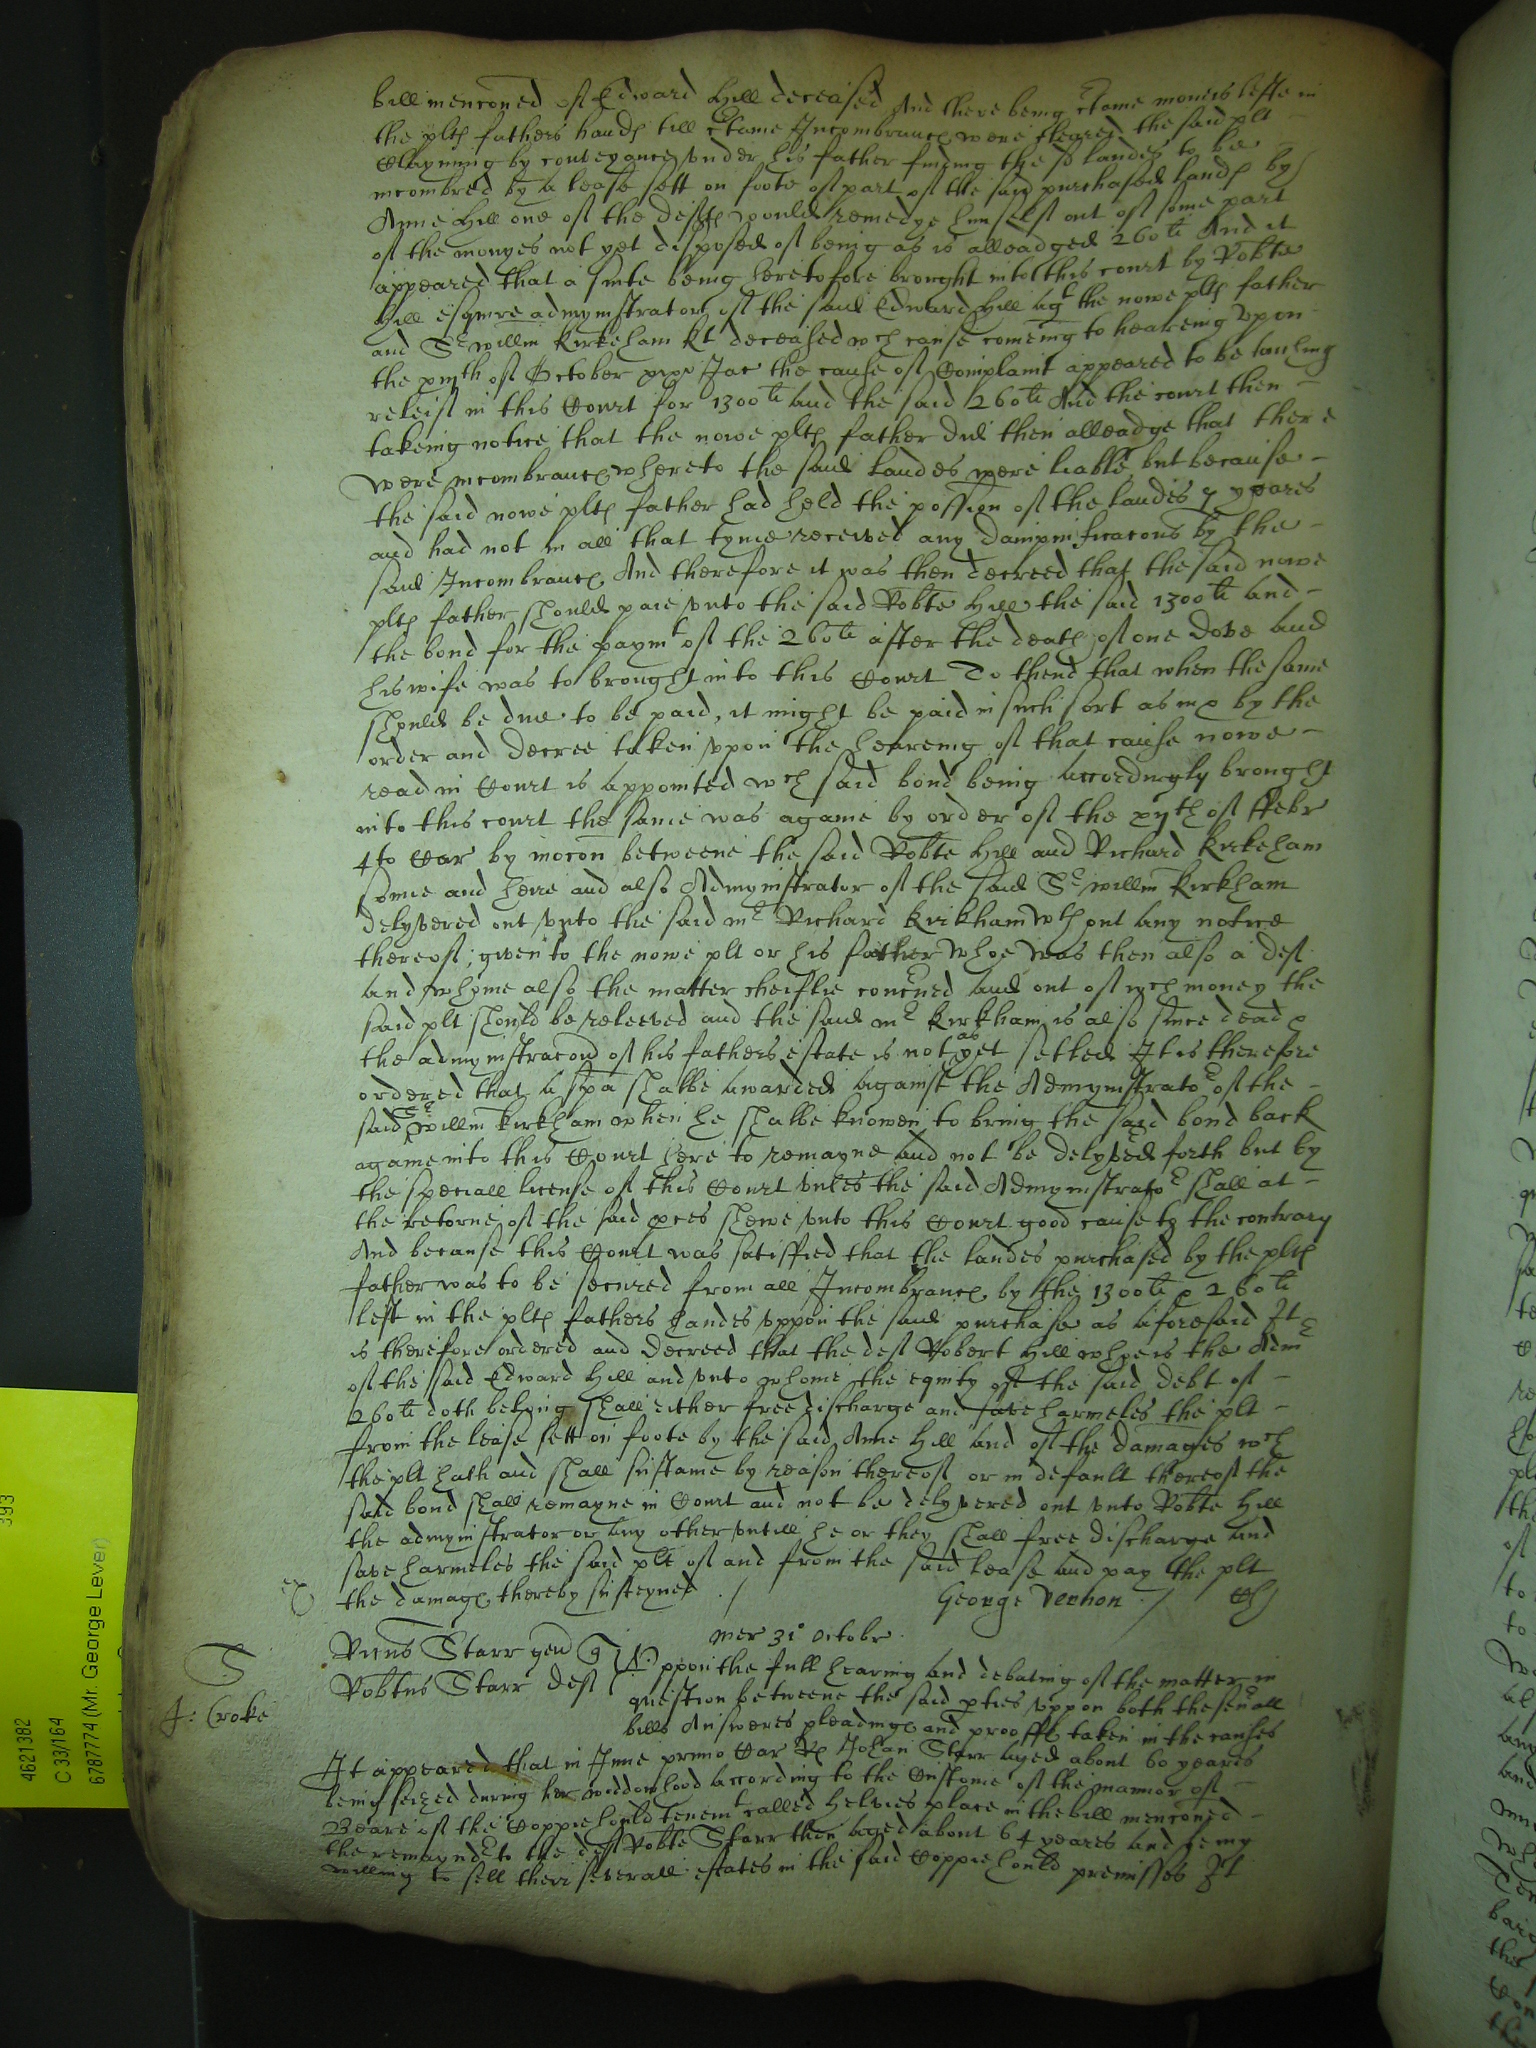 bill menconed of Edward Hill deceased And there being ctaine moneis lefte in
the plts fathers hands till ctaine Incombrances were cleared the said plt
Clayming by conveyance under his father finding the sd landes to be
incombred by a lease sett on foote of part of the said purchased lands by
Anne Hill one of the defts would remedye himself out of some part
of the monyes not yet disposed of being as is alleadged 260li And it
appeared that a suite being heretofore brought into this court by Robte
Hill esquire admynistrator of the said Edward Hill agt the nowe plts father
and Sr willm Kirkeham Kt deceased wch cause comeing to heareing vpon
the xvijth of October xixo Jac the cause of Complaint appeared to be touching
releif in this Court for 1300li and the said 260li And the court then
takeing notice that the nowe plts father did then alleadge that there
were incombrances whereto the said landes were liable but because
the said nowe plts father had held the possion of the landes 7 yeares
and had not in all that tyme received any dampnificacons by the
said Incombrances And therefore it was then decreed that the said nowe
plts father should paie vnto the said Robte Hill the said 1300li and
the bond for the paymt of the 260li after the death of one Dove and
his wife was to brought into this Court To thend that when the same
should be due to be paid, it might be paid in such sort as in & by the
order and decree taken vpon the heareing of that cause nowe
read in Court is appointed wch said bond being accordingly brought
into this court the same was againe by order of the xijth of ffebr
4to Car by mocon betweene the said Robte Hill and Richard Kirkeham
sonne and heire and also Admynistrator of the said Sr willm Kirkham
delyvered out vnto the said mr Richard Kirkham wthout any notice
thereof given to the nowe plt or his father whoe was then also a deft
and whome also the matter cheiflie concned and out of wch money the
said plt should be releeved and the said mr Kirkham is also since dead &
the admynistracon of his fathers estate is not as yet setled It is therefore
ordered that a spa shalbe awarded against the Admynistrator of the
said Sr willm Kirkham when he shalbe knowen to bring the said bond back
againe into this Court here to remayne and not be delyved forth but by
the speciall license of this Court vnles the said Admynistrator shall at
the retorne of the said pces shewe vnto this Court good cause to the contrary
And because this Court was satisfied that the landes purchased by the plts
father was to be secured from all Incombrances by the 1300li & 260li
left in the plts fathers handes vppon the said purchase as aforesaid It
is therefore ordered and decreed that the deft Robert Hill whoe is the Admr
of the said Edward Hill and vnto whome the equity of the said debt of
260li doth belong shall either free discharge and save harmeles the plt
from the lease sett on foote by the said Anne Hill and of the damages wch
the plt hath and shall sustaine by reason thereof or in default thereof the
said bond shall remayne in Court and not be delyvered out vnto Robte Hill
the admynistrator or any other vntill he or they shall free discharge and
save harmeles the said plt of and from the said lease and pay the plt
the damages thereby susteyned ./ George Vernon ./
mer 31o Octobr
S
J: Croke
Starr gen q
Robtus Starr deft
Vppon the full hearing and debating of the matter in
question betweene the said pties vppon both the seuall
bills Answeres pleadings and prooffes taken in the causes
It appeared that in June primo Car Rs Johan Starr aged about 60 yeares
being seized during her widdowhood according to the Custome of the mannor of
Beare of the Coppiehould tenemt called Helvies place in the bill menconed
the remaynder to the deft Robte Starr then aged about 64 yeares and being
willing to sell their severall estates in the said Coppiehould premisses It
4621382
C 33/164
67877774 (Mr. George Lever)
393